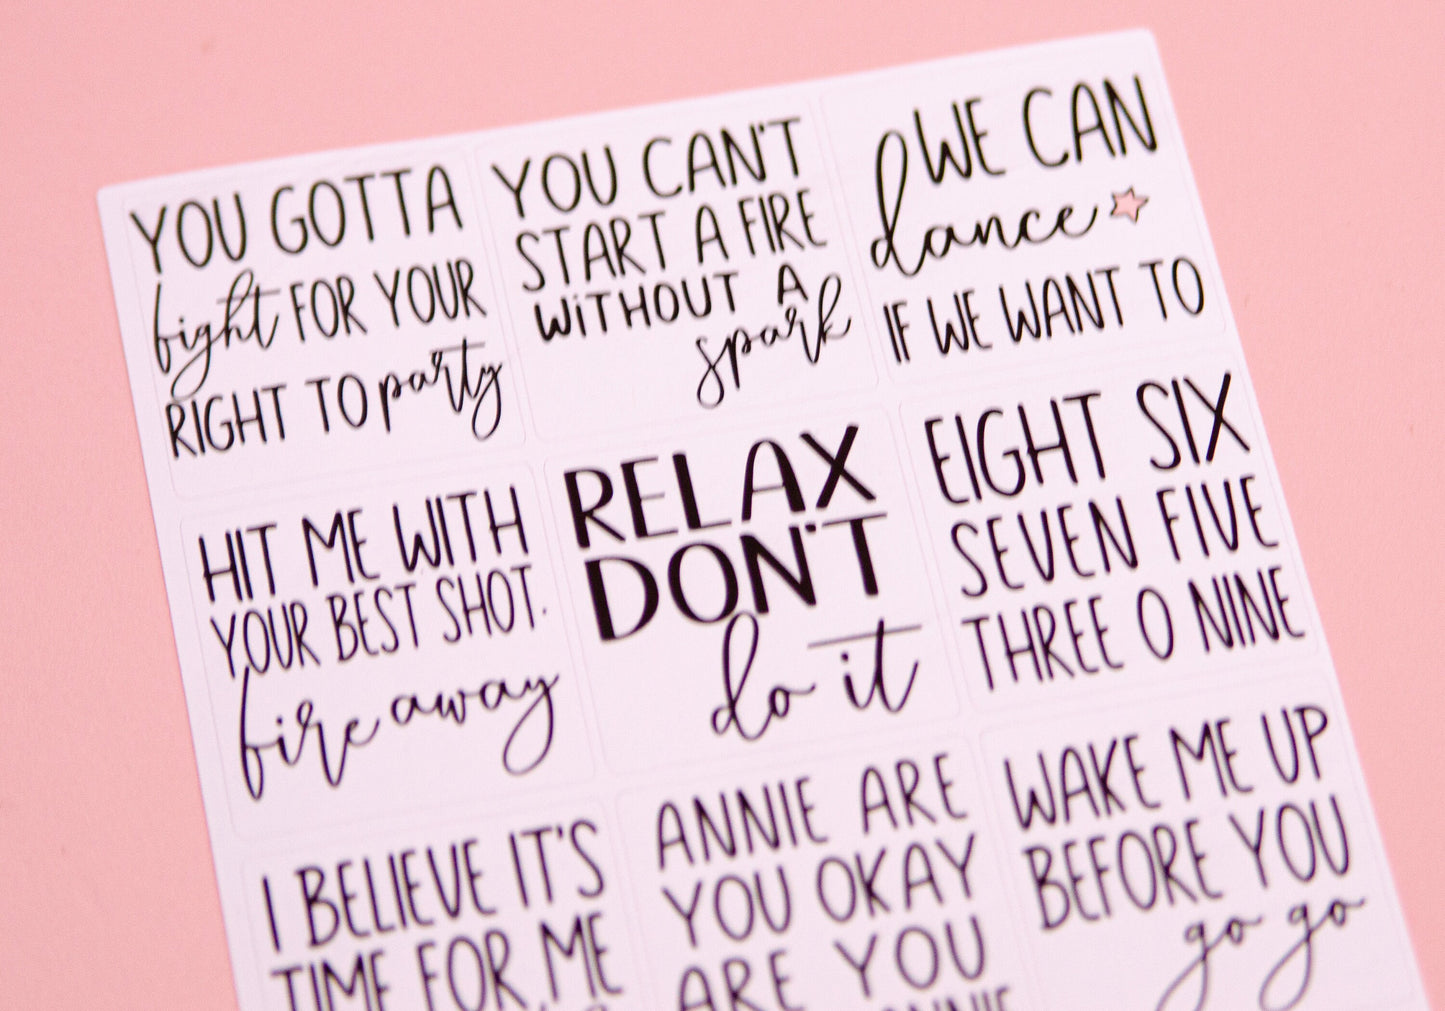 YOU GOTTA
fight FOR YOUR
RIGHT TO party
YOU CAN'T
START A FIRE
WiTHOUT A
spark
WE CAN
dance
IF WE WANT TO
HIT ME WITH
YOUR BEST SHOT.
fire away
RELAX
DON'T
do it
EIGHT SIX
SEVEN FIVE
THREE O NINE
I BELIEVE IT'S
TIME FOR ME
ANNIE ARE
YOU OKAY
ARE YOU
WAKE ME UP
BEFORE YOU
go go